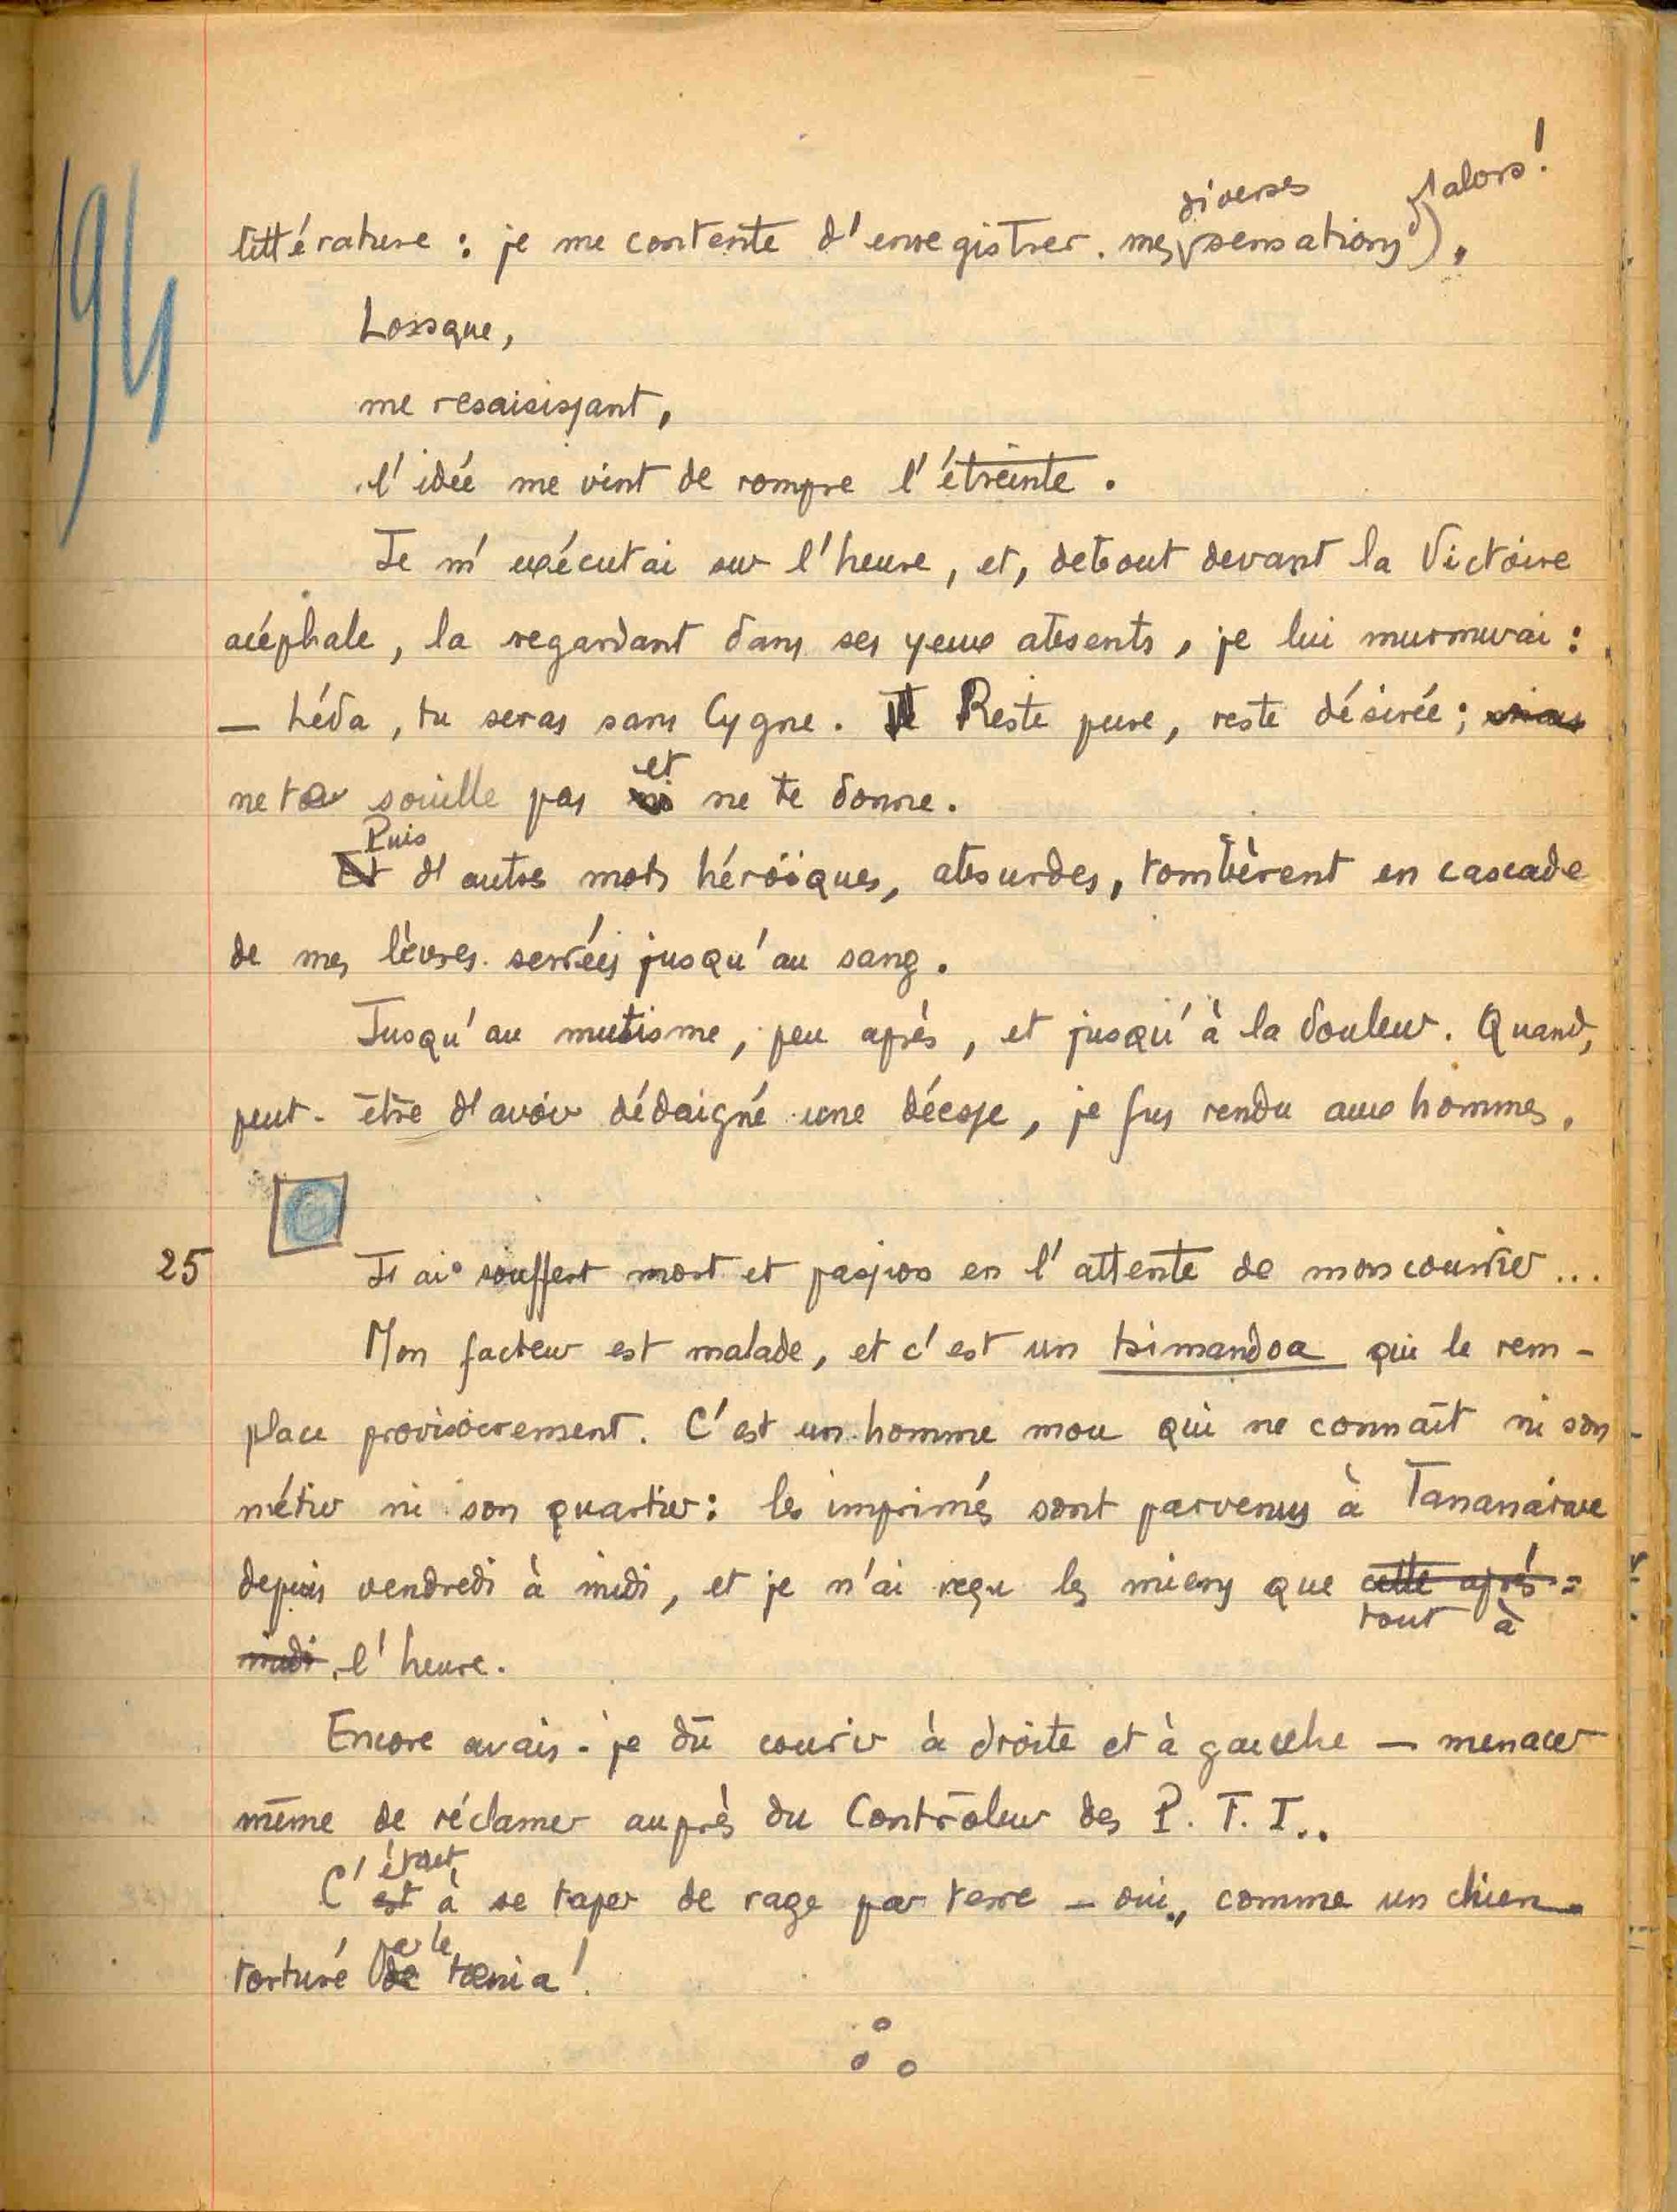 194
diverses d'alors!
littérature : je me contente d'enregistrer mes sensations).
Lorsque,
me resaisissant,
l'idée me vint de rompre l'étreinte.
Je m'exécutai sur l'heure, et, debout devant la Victoire
acéphale, la regardant dans ses yeux absents, je lui murmurai :
— Léda, tu seras sans Cygne. Reste pure, reste désirée ;
et
ne te souille pas ne te donne.
Puis
Et d'autres mots héroïques, absurdes, tombèrent en cascade
de mes lèvres serrées jusqu'au sang.
Jusqu'au mutisme, peu après, et jusqu'à la douleur. Quand,
peut-être d'avoir dédaigné une déesse, je fus rendu aux hommes.
25 J'ai souffert mort et passion en l'attente de mon courrier...
Mon facteur est malade, et c'est un tsimandoa qui le rem-
place provisoirement. C'est un homme mou qui ne connaît ni son
métier ni son quartier : les imprimés sont parvenus à Tananarive
depuis vendredi à midi, et je n'ai reçu les miens que cette après-
tout à
midi l'heure.
Encore avais-je dû courir à droite et à gauche — menacer
même de réclamer auprès du Contrôleur des P. T. T..
était
C'est à se taper de rage par terre — oui, comme un chien
par le
torturé de tænia !